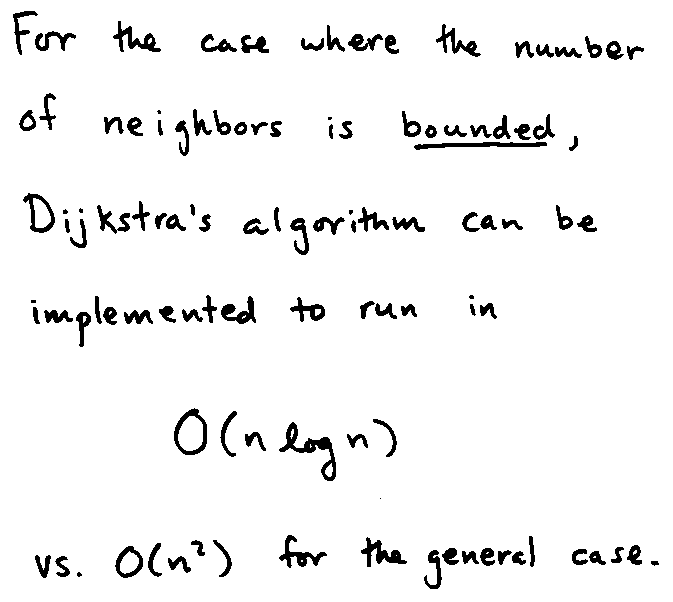 For the case where the number
of neighbors is bounded,
Dijkstra's algorithm can be
implemented to run in
O(n log n)
vs. O(n²) for the general case.